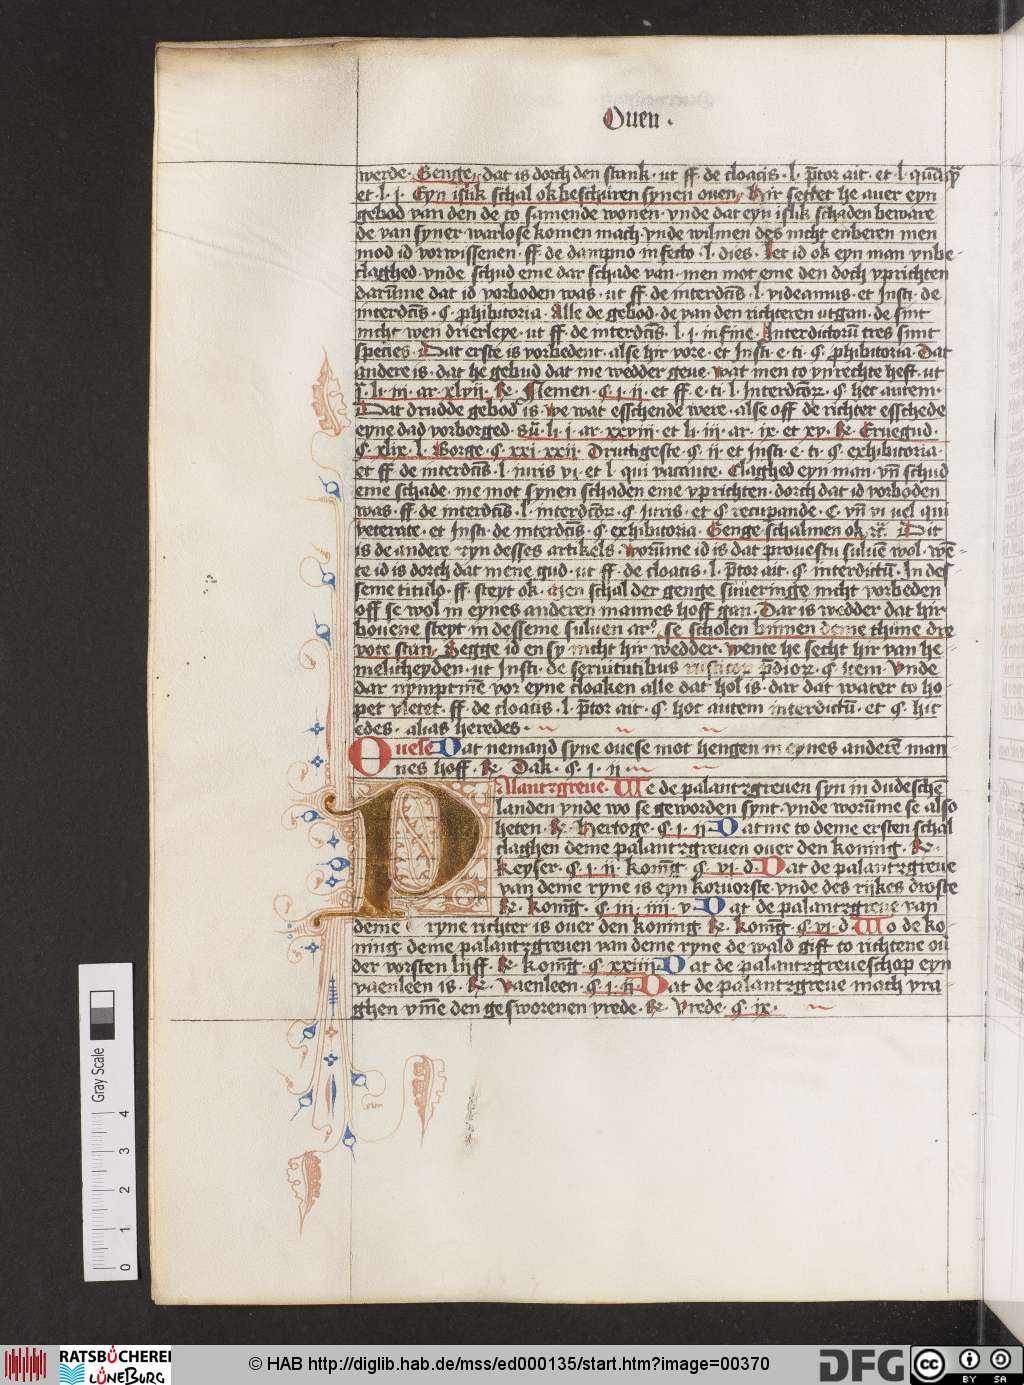 Ouen .
werde · Genge · dat is dorch den stank · ut ff de cloacis · l · p̄tor ait · et · l ·
et · l · j · Eyn islik schal ok beschuren synen ouen · Hir settet he auer eyn
gebod van den de to samende wonen · vnde dat eyn islik schaden beware
de van syner warlose komen mach · vnde wilmen des nicht enberen men
mod id vorwissenen · ff · de dampno infecto · l · dies · Let id ok eyn man vnbe-
claghed · vnde schud eme dar schade van · men mot eme den doch vprichten
darūme dat id vorboden was · ut ff · de interdc̄is · l · videamus · et Insti · de
interdc̄is · ꝯ · phibitoria · Alle de gebod · de van den richteren utgan · de sint
nicht wen drierleye · ut ff · de interdc̄is · l · j · in fine · Interdictorū tres sunt
species · Dat erste is vorbedent · alse hir vore · et Insti · e · ti · ꝯ · phibitoria · Dat
andere is · dat he gebud dat me wedder geue · wat men to vnrechte heft · ut
l · li · iii · ar · xlvii · Re · Nemen · ꝯ · i · ii · et ff · e · ti · l · Interdictor · ꝯ · hec autem ·
Dat drudde gebod is · we wat esschende were · alse off de richter esschede
eyne dad vorborged · sū · li · i · ar · xxviii · et li · iii · ar · ix · et xv · Re · Eruegud ·
ꝯ · xlix · l · Borge · ꝯ · xxi · xxii · Druttigeste · ꝯ · ii · et Insti · e · ti · ꝯ · exhibitoria ·
et ff · de interdc̄is · l · iuris vi · et · l · qui vacante · Claghed eyn man · vn̄ schud
eme schade · me mot synen schaden eme vprichten · dorch dat id vorboden
was · ff · de interdc̄is · l · interdictor · ꝯ · Iuris · et ꝯ · recupande · C · vn̄ vi uel qui
veterate · et Insti · de interdc̄is · ꝯ · exhibitoria · Genge schalmen ok · Dit
is de andere syn desses artikels · worūme id is dat prouestu suluē wol · wē-
te id is dorch dat mene gud · ut ff · de cloacis · l · p̄tor ait · ꝯ · interdictū · In des
seme titulo · ff · steyt ok · schal der genge suueringe nicht vorbeden
off se wol in eynes anderen mannes hoff gan · Dar is wedder dat hir
bouene steyt in desseme suluen ar · se scholen binnen deme thune dre
vote stan · Segge id en sy nicht hir wedder · wente he secht hir van he
melicheyden · ut Insti · de seruitutibus rusticor p̄dior · ꝯ · item · Vnde
dar nymptmē vor eyne cloaken alle dat hol is · dar dat water to ho
pet vletet · ff · de cloacis · l · p̄tor ait · ꝯ · hoc autem interdictū · et ꝯ · hic
edes · alias heredes ·
Ouese Dat nemand syne ouese mot hengen in eynes anderē man
nes hoff · Re · Dak · ꝯ · i · ii ·
Palantzgreue · We de palantzgreuen syn in dudeschē
landen vnde wo se geworden synt · vnde worūme se also
heten · Re · Hertoge · ꝯ · i · ii · Dat me to deme ersten schal
claghen deme palantzgreuen ouer den koning · Re ·
Keyser · ꝯ · i · ii · konīg · ꝯ · vi · d · Dat de palantzgreue
van deme ryne is eyn korvorste · vnde des rijkes droste
Re · konīg · ꝯ · iii · iiii · v · Dat de palantzgreue van
deme ryne richter is ouer den koning · Re · konīg · ꝯ · vi · d · Wo de ko-
ning · deme palantzgreuen van deme ryne de wald gift to richtene ou
der vorsten liff · Re · konīg · ꝯ · xxiiii · Dat de palantzgreueschop eyn
vaenleen is · Re · Vaenleen · ꝯ · i · ii · Dat de palantzgreue mach vra
ghen vm̄e den gesworenen vrede · Re · Vrede · ꝯ · ix ·
Gray Scale
0 1 2 3 4
RATSBÜCHEREI
LÜNEBURG
© HAB http://diglib.hab.de/mss/ed000135/start.htm?image=00370
DFG
cc BY SA